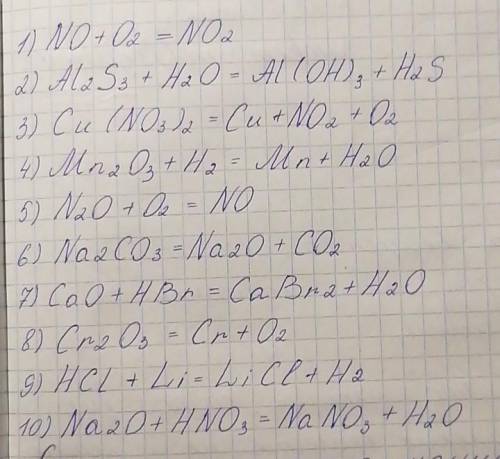 1) NO + O2 = NO2
2) Al2S3 + H2O = Al(OH)3 + H2S
3) Cu(NO3)2 = Cu + NO2 + O2
4) Mn2O3 + H2 = Mn + H2O
5) N2O + O2 = NO
6) Na2CO3 = Na2O + CO2
7) CaO + HBr = CaBr2 + H2O
8) Cr2O3 = Cr + O2
9) HCl + Li = LiCl + H2
10) Na2O + HNO3 = NaNO3 + H2O